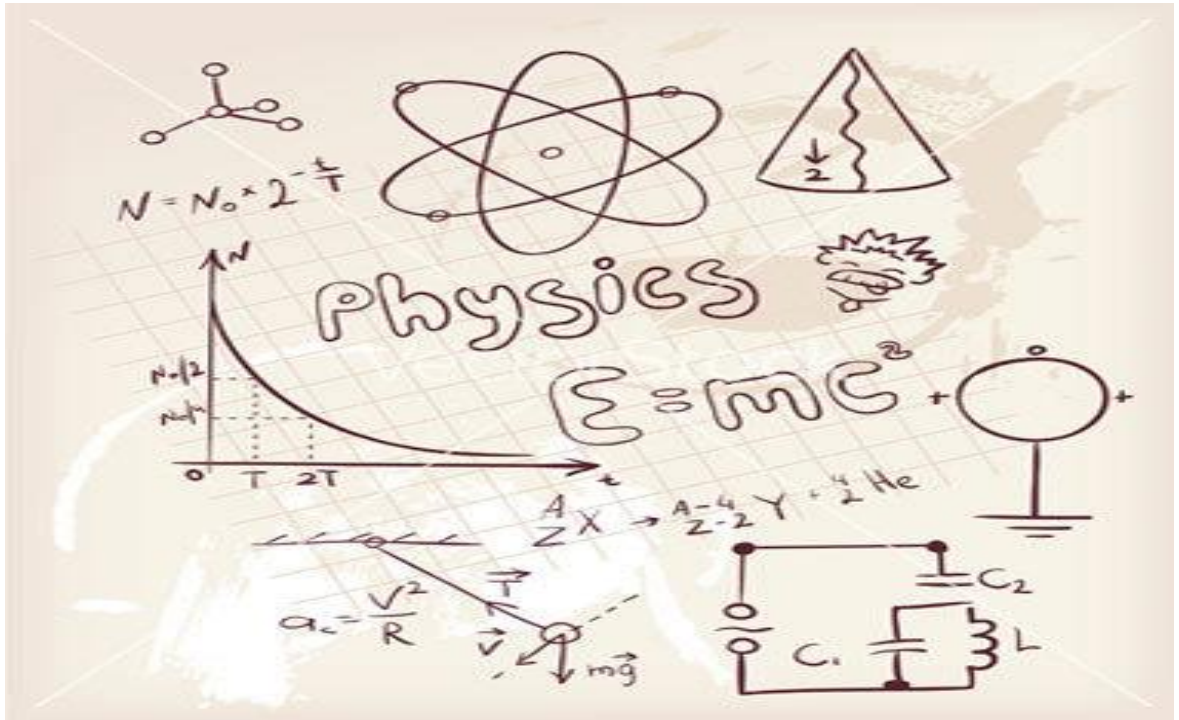 N = N₀ × 2^(-t/T)
↓
2
N
N₀/2
N₀/4
0 T 2T t
Physics
E=mc²
+ +
ᴬ_Z X → ᴬ⁻⁴_Z₋₂ Y + ⁴₂ He
a꜀ = V²/R
T⃗
V⃗
mg⃗
C₂
C₁ L